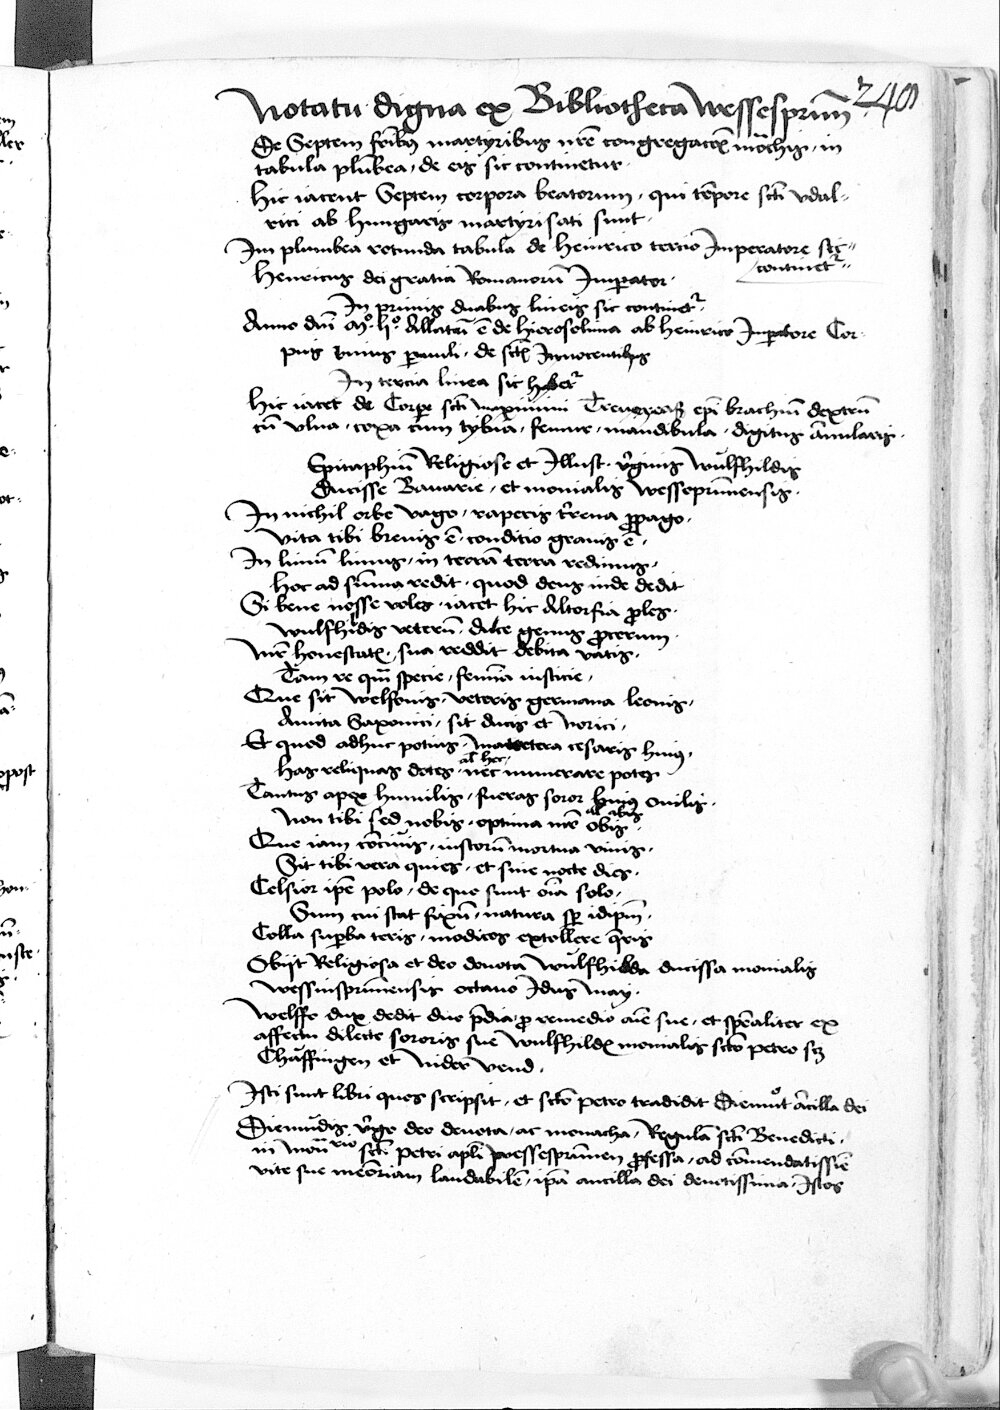 240
Notatu digna ex Bibliotheca Wessesprun̄
De Septem fr̄ibꝰ martyribus nrē congregacōis mōchis, in
tabula plūbea, de eis sic continetur.
Hic iacent Septem corpora beatorum, qui tēpore scti vdal-
rici ab hungaris martyrisati sunt.
Im plumbea rotunda tabula de heinrico tercio Imperatore sic
continetr̄
Henricus dei gratia Romanorū Impator.
In primis duabus lineis sic continetr̄
Anno dn̄i Mo. ljo. Allatū ē de hierosolima ab heinrico Inpatore Cor-
pus vnius pauuli, de sctis Innocentibus
In tercia linea sic habetr̄
Hic iacet de Corpe scti maximini epi brachiū dextrū
cū vlna, coxa cum tybia, femur, mandibula, digitus ānularis.
Epitaphiū Religiose et Illust. v̄ginis Wulfhildis
Ducisse Bauarie, et monialis Wesseprūnensis.
In nichil orbe vago, raperis t̄rena ppago.
Vita tibi breuis ē, conditio grauis ē.
In limū limus, in terrā terra redimus,
Hoc ad sūma redit, quod deus inde dedit
Si bene nosse voles, iacet hic Altorfia ples.
Wulfhildis veterū, duce genus pcerum.
Mr̄e honestatis, sua reddit debita vatis.
Tam re quā specie, femīa iusticie,
Que sit Welfonis, veteris germana leonis,
Amita Saxonici, sit ducis et Norici,
Et quod adhuc potius, matertera cesaris huius,
al hec
Has reliquas dotes, nec numerare potes
Tantus apex humilis, fueras soror huius ouilis.
al abis
Non tibi sed nobis, optima mr̄e obis.
Que iam cōuiuis, iustorū mortua viuis.
Sit tibi vera quies, et sine nocte dies.
Celsior ipē polo, de quo sunt oīa solo.
Sum cui stat fixū, natura sp idipm̄.
Colla supba teris, modicos extollere q̄ris
Obijt Religiosa et deo deuota Wulfhilda ducissa monialis
Wessinsprūnensis octauo Idus May.
Welffo dux dedit duo p̄dia, p remedio aīe sue, et spēaliter ex
affectu dilecte sororis sue Wulfhildis monialis scto petro sz
Chuffringen et Nider Vend.
Isti sunt libri quos scripsit, et scto petro tradidit Diemůt ācilla dei
Diemudis v̄go deo deuota, ac monacha, Regula scti Benedicti,
in mon̄rio scti petri apli Wessesprūnen pfessa, ad cōmendatissiē
vite sue mēoriam laudabilē, ipā ancilla dei deuotissima, Istos